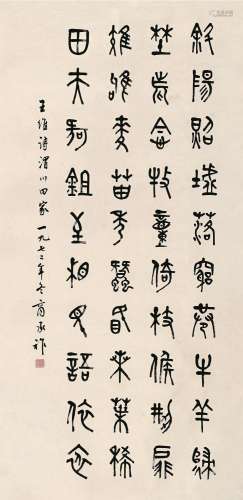 斜陽照墟落窮巷牛羊歸
野老念牧童倚杖候荊扉
雉雊麥苗秀蠶眠桑葉稀
田夫荷鉏至相見語依依
王維詩渭川田家一九七二年冬商承祚